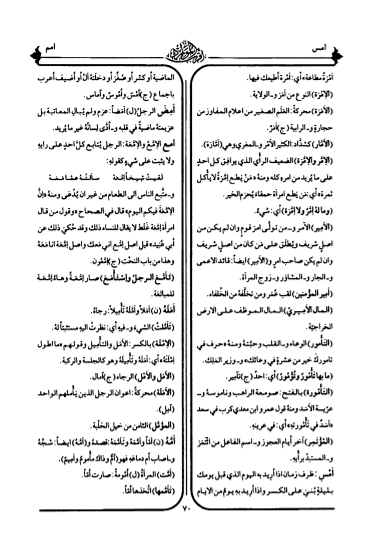 أمس
أمم
أَمْرَةٌ مطاعة» أي: أمْرة أطيعك فيها.
(الإِمْرَة) النوع من أمَرَ ـ والولاية.
(الأَمَرَة) محركةً: العلم الصغير من أعلام المفاوز من
حجارة ـ والرابية (ج) أَمَرٌ.
(الأمّار) كشدّاد: الكثير الأمر ـ والمغري وهي (أمّارة).
(الإمّر والإمّرة) الضعيف الرأي الذي يوافق كل أحد
على ما يريد من أمره كله ومنه «من يُطع إمّرة لا يأكل
ثمرة» أي: من يطع امرأة حمقاء يُحرم الخير.
(وما لهُ إمّرٌ ولا إمّرة) أي: شيءٌ.
(الأمير) الآمر ـ من تولّى أمر قوم وإن لم يكن من
أصل شريف ويُطلق على مَن كان من أصل شريف
وإن لم يكن صاحب أمر و(الأمير) أيضاً: قائد الأعمى
ـ والجار ـ والمشاوَر ـ وزوج المرأة.
(أمير المؤمنين) لقب عُمَر ومن تخلّفه من الخُلفاء.
(المال الأميريّ) المال الموظف على الأرض
الخراجيّة.
(التأمور) الوعاء ـ والقلب وحبّتهُ ومنهُ «حرف في
تامورك خير من عشرةٍ في وعائك» ـ وزير الملك.
(ما بها تأمُورٌ وتُؤْمُورٌ) أي: أحدٌ (ج) تآمير.
(التأمورة) بالفتح: صومعة الراهب وناموسهُ ـ
عرّيسة الأسد ومنهُ قول عمرو بن معدي كرب في سعد
«أسدٌ في تأمورته» أي: في عرينه.
(المؤتمر) آخر أيام العجوز ـ واسم الفاعل من ائتمَرَ
ـ والمستبدّ برأيه.
أمْسِ: ظرف زمان إذا أُريد به اليوم الذي قبل يومك
بليلةٍ بُني على الكسر وإذا أُريد به يومٌ من الأيام
الماضية أو كسّر أو صُغّر أو دخلتهُ أل أو أضيف أُعرب
بإجماع (ج) آمُسٌ وأُمُوسٌ وآماس.
أَمِضَ الرجلُ(ل) أَمَضاً: عزم ولم يُبالِ المعاتبة بل
عزيمتهُ ماضيةٌ في قلبه ـ وأدّى لسانهُ غير ما يُريد.
أمع الإمّعُ والإمّعة: الرجل يُتابع كلّ أحدٍ على رأيه
ولا يثبت على شيءٍ كقوله:
ـ ومتّبع الناس إلى الطعام من غير أن يُدعى ومنهُ «إنّ
الإمّعة فيكم اليوم» قال في الصحاح «وقول من قال
امرأة إمّعة غلطٌ لا يقال للنساء ذلك وقد حُكي ذلك عن
وهذا من باب النحت (ج) إمّعُون.
(تأمّع الرجلُ واستأمع) صار إمّعةً وهاءُ إمّعة
للمبالغة.
أَمَلَهُ (ن) أَمَلاً وأمَلَهُ تأميلاً: رجاهُ.
(تأمّلتُ) الشيءَ ـ وفيه أي: نظرتُ إليه مستثبتاً لهُ.
(الإِمْلة) بالكسر: الأمل والتأميل وقولهم «ما أطول
إمْلَتَهُ» أي: أمَلَهُ وتأميلهُ وهو كالجلسة والركبة.
(الأَمَل والأَمْل) الرجاء (ج) آمال.
(الأَمَلَة) محركةً: أعوان الرجل الذين يأملهم الواحد
(آمل).
(المؤمّل) الثامن من خيل الحلبة.
أَمَّهُ (ن) أَمًّا وأمّمَهُ وتأمّمَهُ: قصدهُ و(أمّهُ) أيضاً: شجّهُ
ـ وأصاب أم دماغه فهو (آمٌّ) وذاك مأموم وأميم).
(أمّت) المرأةُ (ل) أُمومةً: صارت أُمًّا.
(تأمّمها) اتّخذها أُمًّا.
٧٠